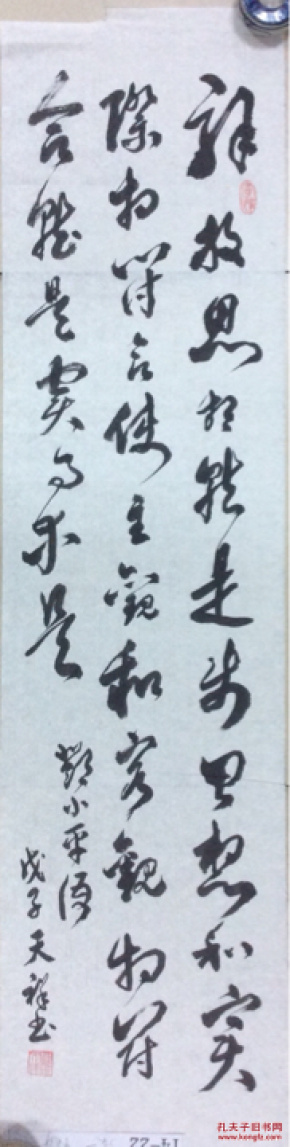 解放思想就是使思想和实
際相符合使主觀和客觀相符
合就是实事求是
鄧小平语
戊子天祥书
14-22
孔夫子旧书网
www.kongfz.com